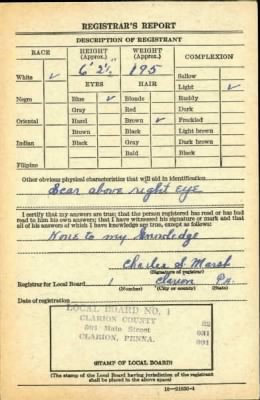 REGISTRAR'S REPORT
DESCRIPTION OF REGISTRANT
RACE HEIGHT (Approx.) WEIGHT (Approx.) COMPLEXION
6' 2½" 195
White ✓ EYES HAIR Sallow
Light ✓
Negro Blue ✓ Blonde Ruddy
Gray Red Dark
Oriental Hazel Brown ✓ Freckled
Brown Black Light brown
Indian Black Gray Dark brown
Bald Black
Filipino
Other obvious physical characteristics that will aid in identification
Scar above right eye
I certify that my answers are true; that the person registered has read or has had
read to him his own answers; that I have witnessed his signature or mark and that
all of his answers of which I have knowledge are true, except as follows:
None to my knowledge
Charles S. Marsh
(Signature of registrar)
Registrar for Local Board 1 Clarion Pa.
(Number) (City or county) (State)
Date of registration
LOCAL BOARD NO. 1
CLARION COUNTY
601 Main Street
CLARION, PENNA.
031
001
(STAMP OF LOCAL BOARD)
(The stamp of the Local Board having jurisdiction of the registrant
shall be placed in the above space)
16—21630-4